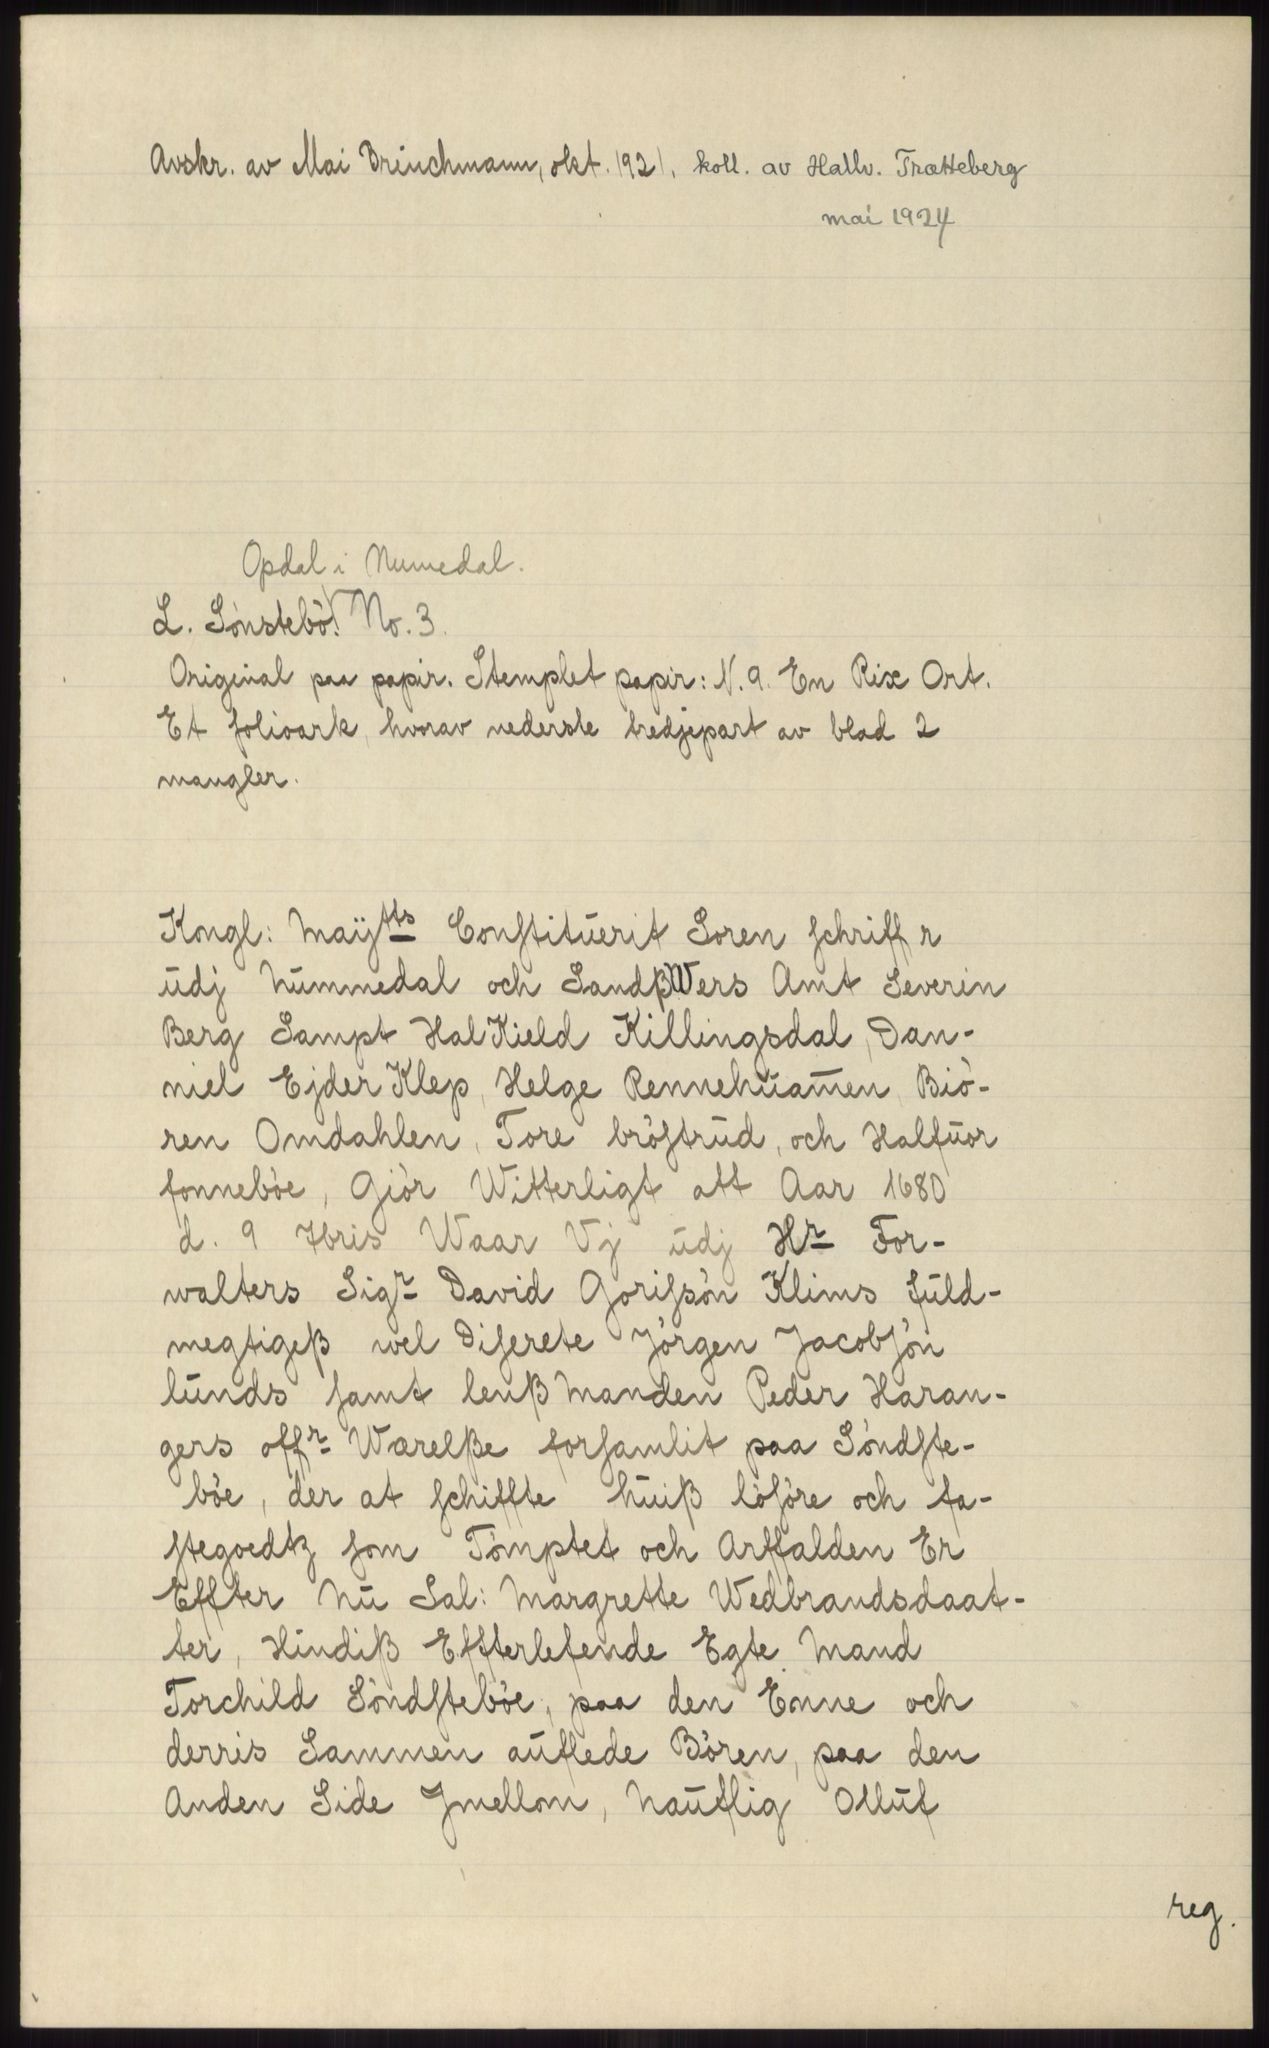 Avskr. av Mai Brinchmann, okt. 1921. koll. av Hallv. Trætteberg
mai 1924
Opdal i Numedal.
L. Sönstebö. No. 3.
Original paa papir. Stemplet papir: N. 9. En Rix Ort.
Et folioark, hvorav nederste tredjepart av blad 2
mangler.
Kongl: Maÿtts Constituerit Soren schriff r
udj Nummedal och SandßWers Amt Severin
Berg Sampt HalKield Killingsdal, Dan-
niel EjderKlep, Helge Rennehuamen, Biö-
ren Omdahlen, Tore bröstrud, och Halfuor
fonneböe, Giör Witterligt att Aar 1680
d. 9 7bris Waar Vj udj Hr For-
walters Sigr David Gorissön Klims fuld-
megtigeß wel Diserete Jörgen Jacobsön
lunds samt lenßmanden Peder Haran-
gers offr Wærelße forsamlit paa Söndste-
böe, der at schiffte huiß lösöre och fa-
stegoedtz som Tömptet och Arffalden Er
Effter Nu Sal: Margrette Wedbrandsdaat-
ter, Hindiß Effterlefende Egte Mand
Torchild Söndsteböe, paa den Enne och
derris Sammen auflede Bören, paa den
Anden Side Jmellom, Nauflig Olluf
reg.